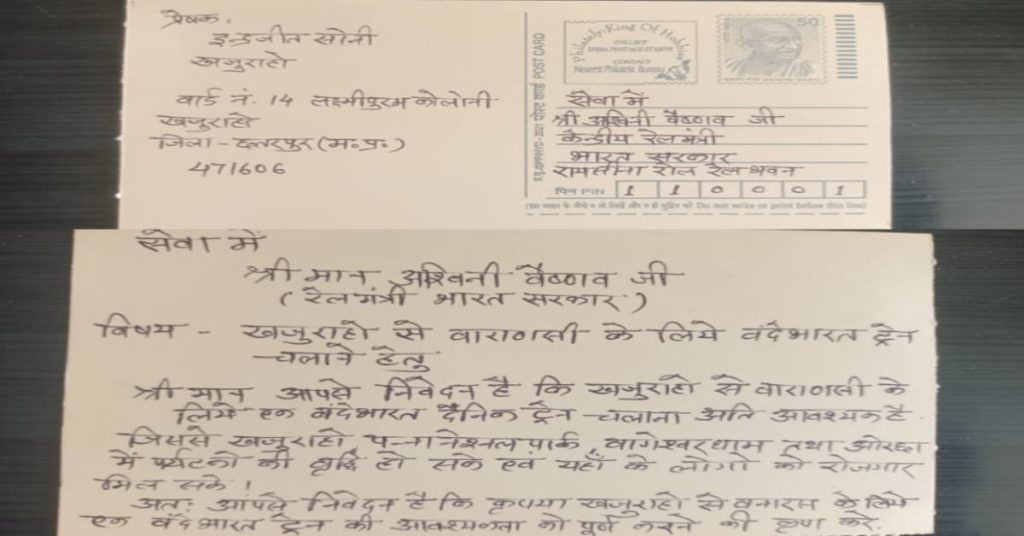 प्रेषक,
इन्द्रजीत सोनी
खजुराहो
वार्ड नं. 14 लक्ष्मीपुरम कोलोनी
खजुराहो
जिला - छतरपुर (म॰प्र॰)
471606
पोस्ट कार्ड POST CARD
Philately: King Of Hobbies
COLLECT
INDIA POSTAGE STAMPS
CONTACT
Nearest Philatelic Bureau
50
सेवा में
श्री अश्विनी वैष्णव जी
केन्द्रीय रेल मंत्री
भारत सरकार
रेल भवन
पिन PIN 1 1 0 0 0 1
(इस लाइन के नीचे न तो लिखें और न ही मुद्रित करें Do not write or print below this line)
सेवा में
श्री मान अश्विनी वैष्णव जी
( रेल मंत्री भारत सरकार )
विषय - खजुराहो से वाराणसी के लिये वंदेभारत ट्रेन
चलाने हेतु
श्री मान आपसे निवेदन है कि खजुराहो से वाराणसी के
लिये एक वंदेभारत दैनिक ट्रेन चलाना अति आवश्यक है
जिससे खजुराहो, पन्नानेशनल पार्क, बागेश्वरधाम तथा ओरछा
में पर्यटको की वृद्धि हो सके एवं यहाँ के लोगो को रोजगार
मिल सके।
अतः आपसे निवेदन है कि कृपया खजुराहो से बनारस के लिये
एक वंदेभारत ट्रेन की आवश्यकता को पूर्ण करने की कृपा करे.